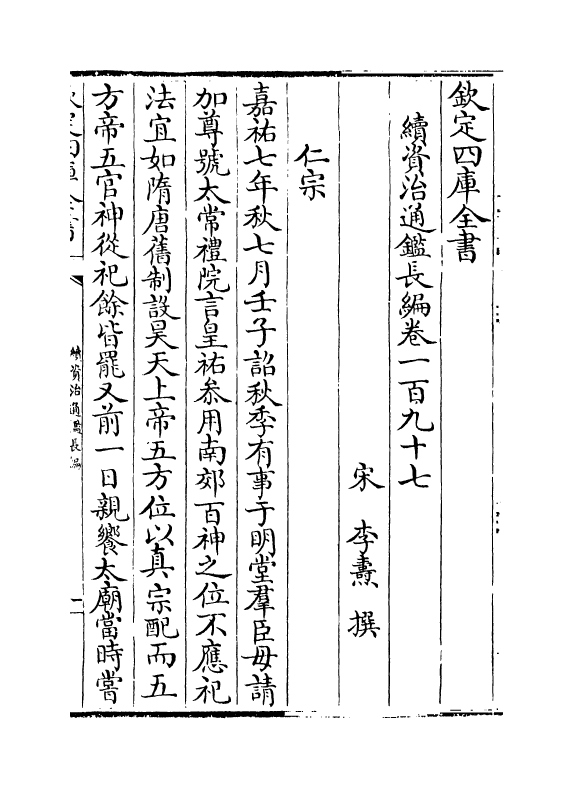 欽定四庫全書
續資治通鑑長編卷一百九十七
宋 李燾 撰
仁宗
嘉祐七年秋七月壬子詔秋季有事于明堂羣臣毋請
加尊號太常禮院言皇祐叅用南郊百神之位不應祀
法宜如隋唐舊制設昊天上帝五方位以真宗配而五
方帝五官神從祀餘皆罷又前一日親饗太廟當時嘗
欽定四庫全書
續資治通鑑長編
一